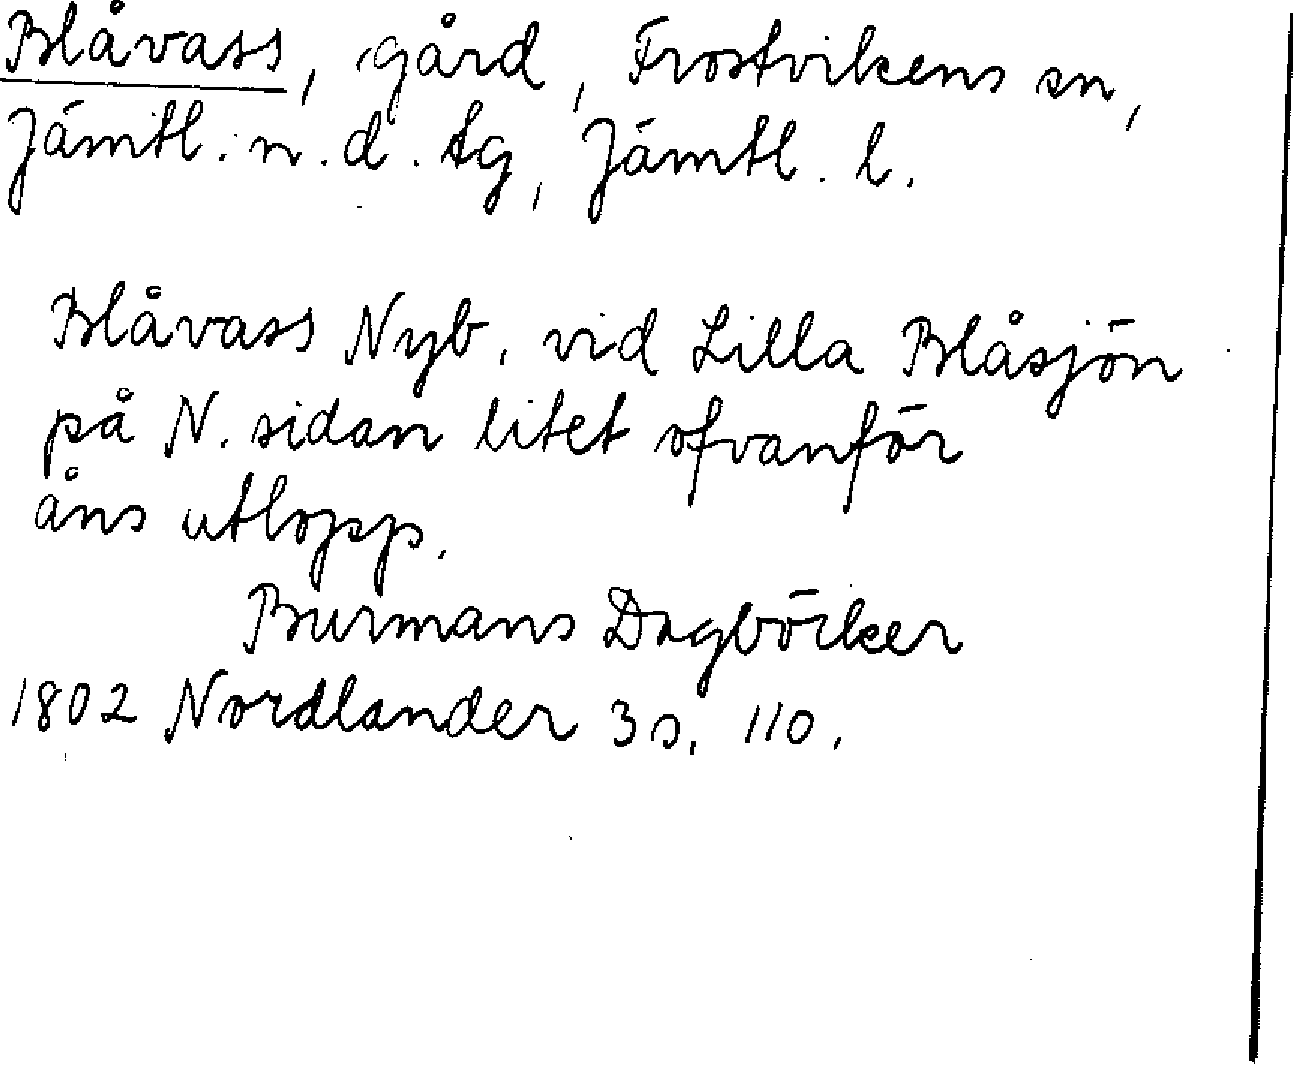 Blåvass, gård, Frostvikens sn,
Jämtl. n. d. tg, Jämtl. l.
Blåvass Nyb. vid Lilla Blåsjön
på N. sidan litet ofvanför
åns utlopp.
Burmans Dagböcker
1802 Nordlander 3 s. 110.